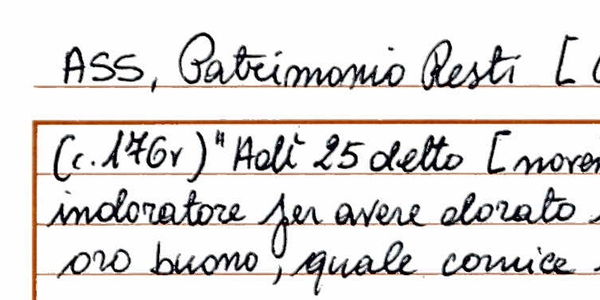 ASS, Patrimonio Resti [
(c. 176v) "Adì 25 detto [novem
indoratore per avere dorato
oro buono, quale cornice